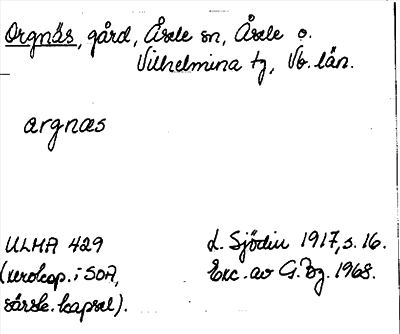 Orgnäs, gård, Åsele sn, Åsele o.
Vilhelmina tg, Vb. län.
argnæs
ULMA 429
L. Sjödin 1917, s. 16.
(xerokop. i SOA,
Exc. av G. Bg. 1968.
särsk. kapsel).